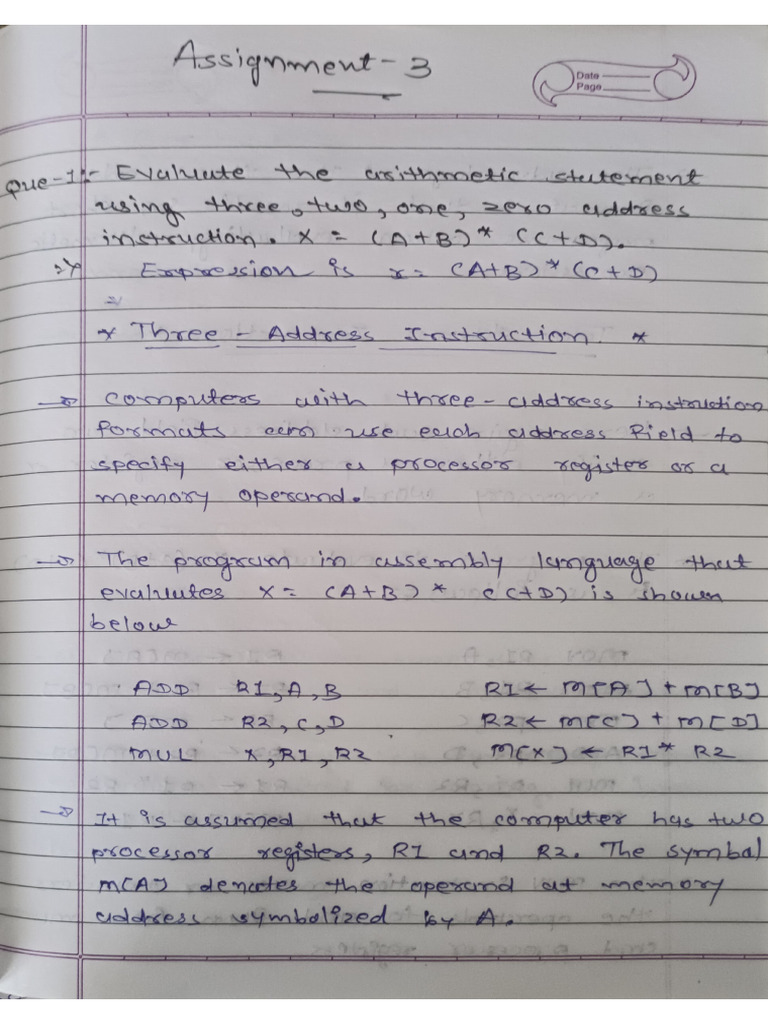 Assignment - 3
Date
Page
Que-1:- Evaluate the arithmetic statement
using three, two, one, zero address
instruction. X = (A+B) * (C+D).
=> Expression is x = (A+B) * (C+D)
=
* Three - Address Instruction. *
→ Computers with three-address instruction
formats can use each address field to
specify either a processor register or a
memory operand.
→ The program in assembly language that
evaluates X = (A+B) * (C+D) is shown
below
ADD R1, A, B R1 ← M[A] + M[B]
ADD R2, C, D R2 ← M[C] + M[D]
MUL X, R1, R2 M[X] ← R1 * R2
→ It is assumed that the computer has two
processor registers, R1 and R2. The symbol
M[A] denotes the operand at memory
address symbolized by A.